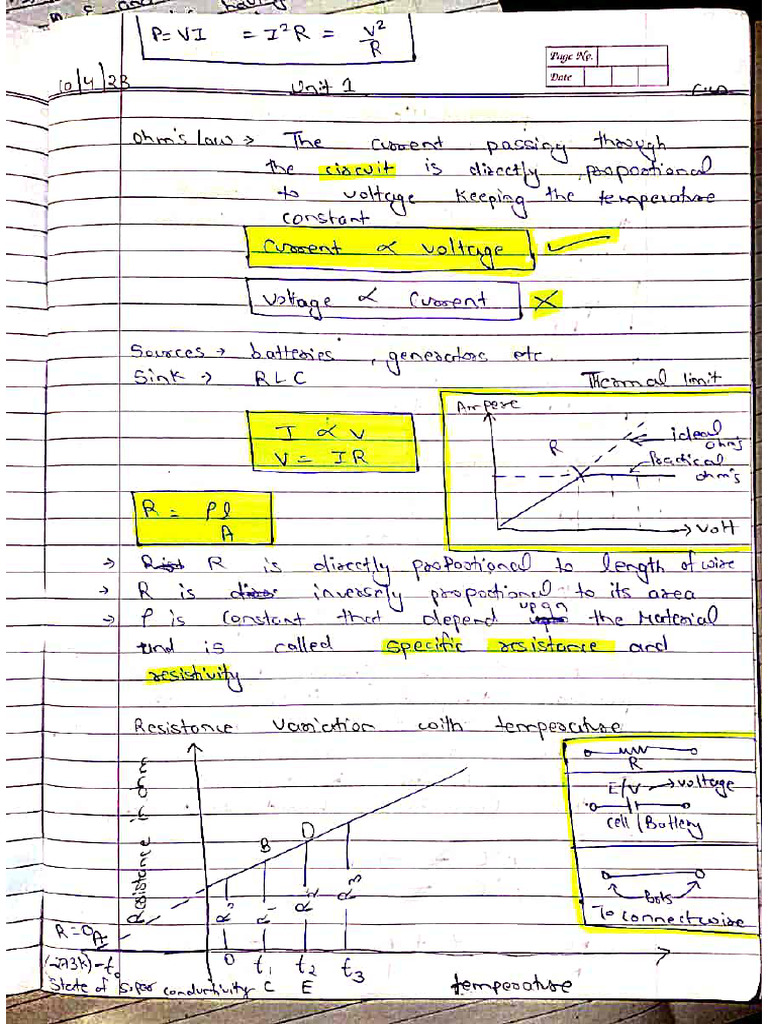 P = VI = I²R = V²/R
Page No.
Date
10/4/23
Unit 1
Ohm's law → The current passing through
the circuit is directly proportional
to voltage keeping the temperature
constant
Current ∝ voltage ✓
Voltage ∝ Current ×
Sources → batteries, generators etc.
Sink → RLC
Thermal limit
I ∝ V
V = IR
Ampere
R
ideal ohm's
Practical ohm's
→ volt
R = ρl/A
→ R is directly proportional to length of wire
→ R is inversely proportional to its area
→ ρ is constant that depend upon the Material
and is called specific resistance and
resistivity
Resistance variation with temperature
Resistance in ohm
B
D
R₀
R₁
R₂
R₃
R=0
A
(-273K)-t₀
0
t₁
t₂
t₃
State of super conductivity C E
temperature
R
E/V → voltage
cell/Battery
Dots
To connect wire